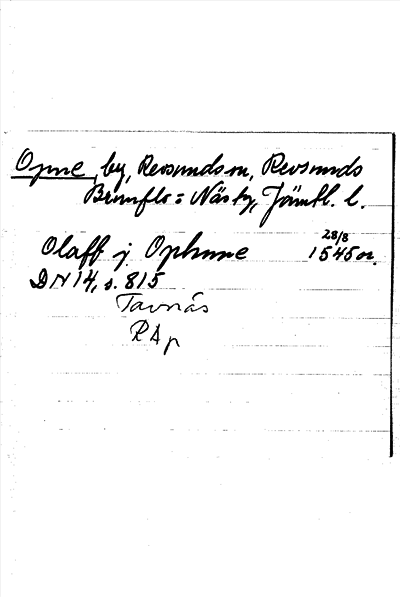 Opne, by, Revsunds sn, Revsunds
Brunflo = Näs tg, Jämtl. l.
28/8
Olaff j Ophnne 1545 or.
DN 14, s. 815
Tavnäs
RAp